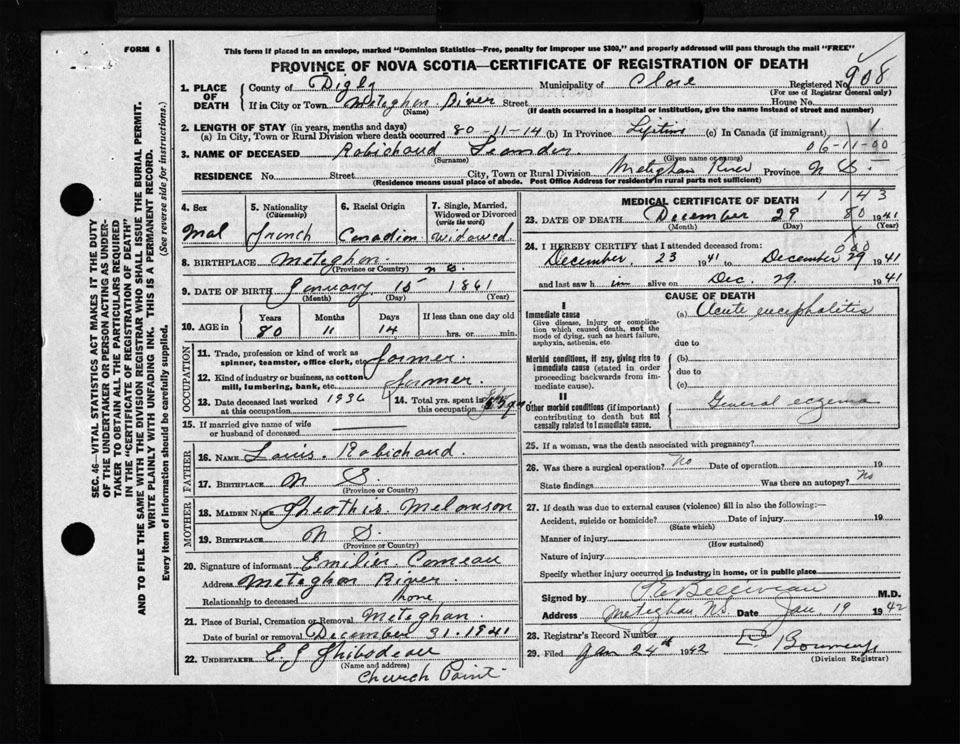 FORM 6
This form if placed in an envelope, marked "Dominion Statistics—Free, penalty for improper use $300," and properly addressed will pass through the mail "FREE"
PROVINCE OF NOVA SCOTIA—CERTIFICATE OF REGISTRATION OF DEATH
908
1. PLACE OF DEATH
County of Digby Municipality of Clare Registered No.
(For use of Registrar General only)
If in City or Town Meteghan River Street House No.
(Name) (If death occurred in a hospital or institution, give the name instead of street and number)
2. LENGTH OF STAY (in years, months and days)
(a) In City, Town or Rural Division where death occurred 80-11-14 (b) In Province Lifetime (c) In Canada (if immigrant)
06-11-00
3. NAME OF DECEASED Robichaud Leander
(Surname) (Given name or names)
RESIDENCE No. Street City, Town or Rural Division Meteghan River Province N S.
(Residence means usual place of abode. Post Office Address for residents in rural parts not sufficient)
4. Sex
Mal
5. Nationality
(Citizenship)
french
6. Racial Origin
Canadian
7. Single, Married, Widowed or Divorced
(write the word)
Widowed
8. BIRTHPLACE Meteghan N S.
(Province or Country)
9. DATE OF BIRTH January 15 1861
(Month) (Day) (Year)
10. AGE in
Years Months Days If less than one day old
80 11 14 hrs. or min.
OCCUPATION
11. Trade, profession or kind of work as spinner, teamster, office clerk, etc. farmer.
12. Kind of industry or business, as cotton mill, lumbering, bank, etc. farmer.
13. Date deceased last worked at this occupation 1936
14. Total yrs. spent in this occupation
15. If married give name of wife or husband of deceased
FATHER
16. NAME Louis. Robichaud.
17. BIRTHPLACE N S
(Province or Country)
MOTHER
18. MAIDEN NAME Melanson
19. BIRTHPLACE N S.
(Province or Country)
20. Signature of informant Emilien Comeau
Address Meteghan River.
Relationship to deceased none
21. Place of Burial, Cremation or Removal Meteghan.
Date of burial or removal December 31. 1941
22. UNDERTAKER E J Thibodeau
(Name and address)
Church Point
MEDICAL CERTIFICATE OF DEATH
1 1 4 3
23. DATE OF DEATH December 29 80 1941
(Month) (Day) (Year)
24. I HEREBY CERTIFY that I attended deceased from:
December. 23 1941 to December 29 1941
and last saw him alive on Dec 29. 1941
CAUSE OF DEATH
I
Immediate cause
Give disease, injury or complication which caused death, not the mode of dying, such as heart failure, asphyxia, asthenia, etc.
(a) Acute encephalitis
due to
Morbid conditions, if any, giving rise to immediate cause (stated in order proceeding backwards from immediate cause).
(b)
due to
(c)
II
Other morbid conditions (if important) contributing to death but not causally related to immediate cause.
General eczema
25. If a woman, was the death associated with pregnancy?
26. Was there a surgical operation? No Date of operation 19
State findings Was there an autopsy? No
27. If death was due to external causes (violence) fill in also the following:—
Accident, suicide or homicide? Date of injury 19
(State which)
Manner of injury
(How sustained)
Nature of injury
Specify whether injury occurred in industry, in home, or in public place
Signed by Belliveau M.D.
Address Meteghan N.S. Date Jan 19 1942
28. Registrar's Record Number
29. Filed Jan 24th 1942
(Division Registrar)
SEC. 46—VITAL STATISTICS ACT MAKES IT THE DUTY
OF THE UNDERTAKER OR PERSON ACTING AS UNDERTAKER TO OBTAIN ALL THE PARTICULARS REQUIRED
IN THE "CERTIFICATE OF REGISTRATION OF DEATH"
AND TO FILE THE SAME WITH THE DIVISION REGISTRAR WHO SHALL ISSUE THE BURIAL PERMIT.
WRITE PLAINLY WITH UNFADING INK. THIS IS A PERMANENT RECORD.
Every item of information should be carefully supplied. (See reverse side for instructions.)